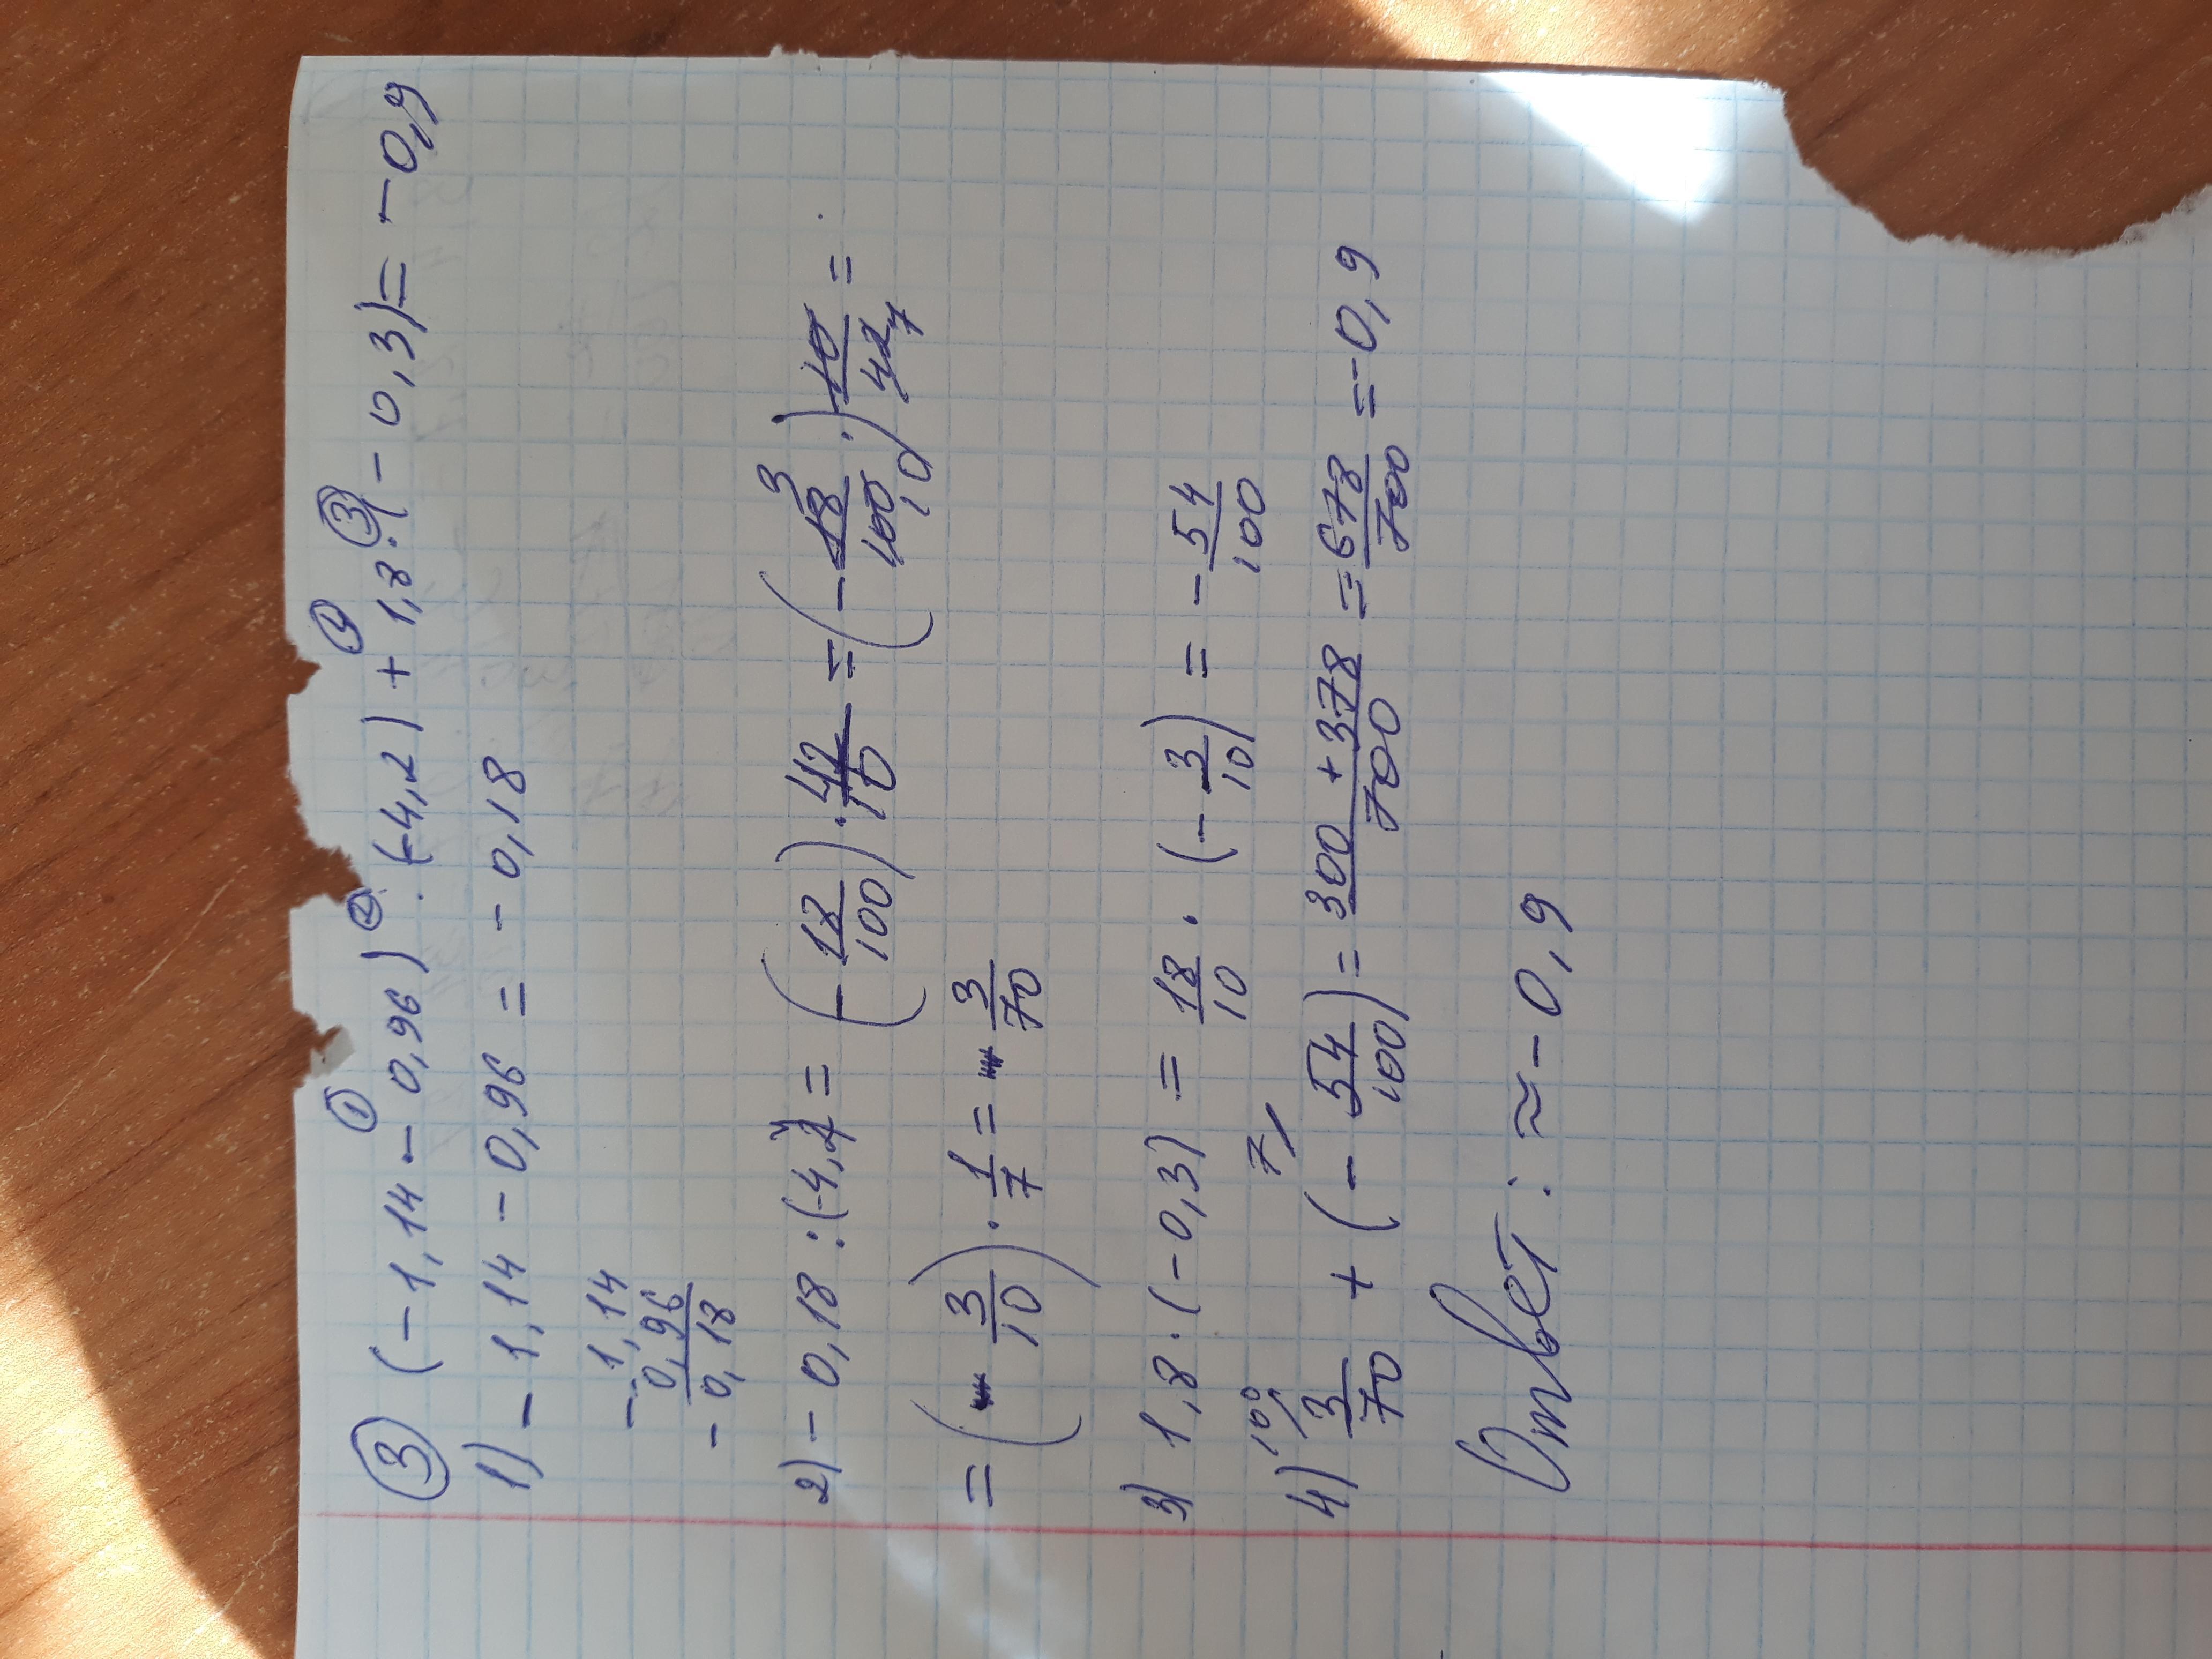 ③ (-1,14 - 0,96) : (-4,2) + 1,8 · (-0,3) = -0,9
① ② ④ ③
1) -1,14 - 0,96 = -0,18
-1,14
0,96
-0,18
2) -0,18 : (-4,2) = (-18/100) · 42/10 = (-18/100 ·) 10/42 =
3 10 7
= (3/10) · 1/7 = 3/70
3) 1,8 · (-0,3) = 18/10 · (-3/10) = -54/100
100/ 7/
4) 3/70 + (-54/100) = 300 + 378/700 = 678/700 = -0,9
Ответ: ≈ -0,9